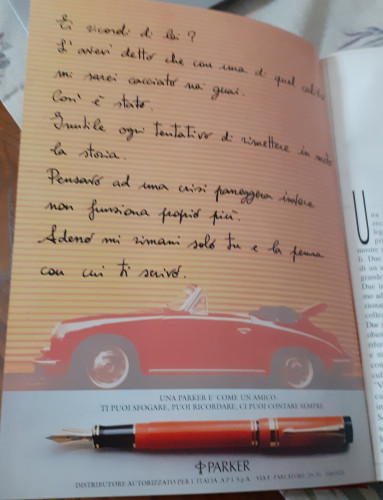 Ti ricordi di lei?
L'avevi detto che con una di quel calibro
mi sarei cacciato nei guai.
Così è stato.
Inutile ogni tentativo di rimettere in moto
la storia.
Pensavo ad una crisi passeggera invece
non funziona proprio più.
Adesso mi rimani solo tu e la penna
con cui ti scrivo.
UNA PARKER E' COME UN AMICO.
TI PUOI SFOGARE, PUOI RICORDARE, CI PUOI CONTARE SEMPRE.
PARKER
DISTRIBUTORE AUTORIZZATO PER L'ITALIA A.P.I. S.p.A.
U